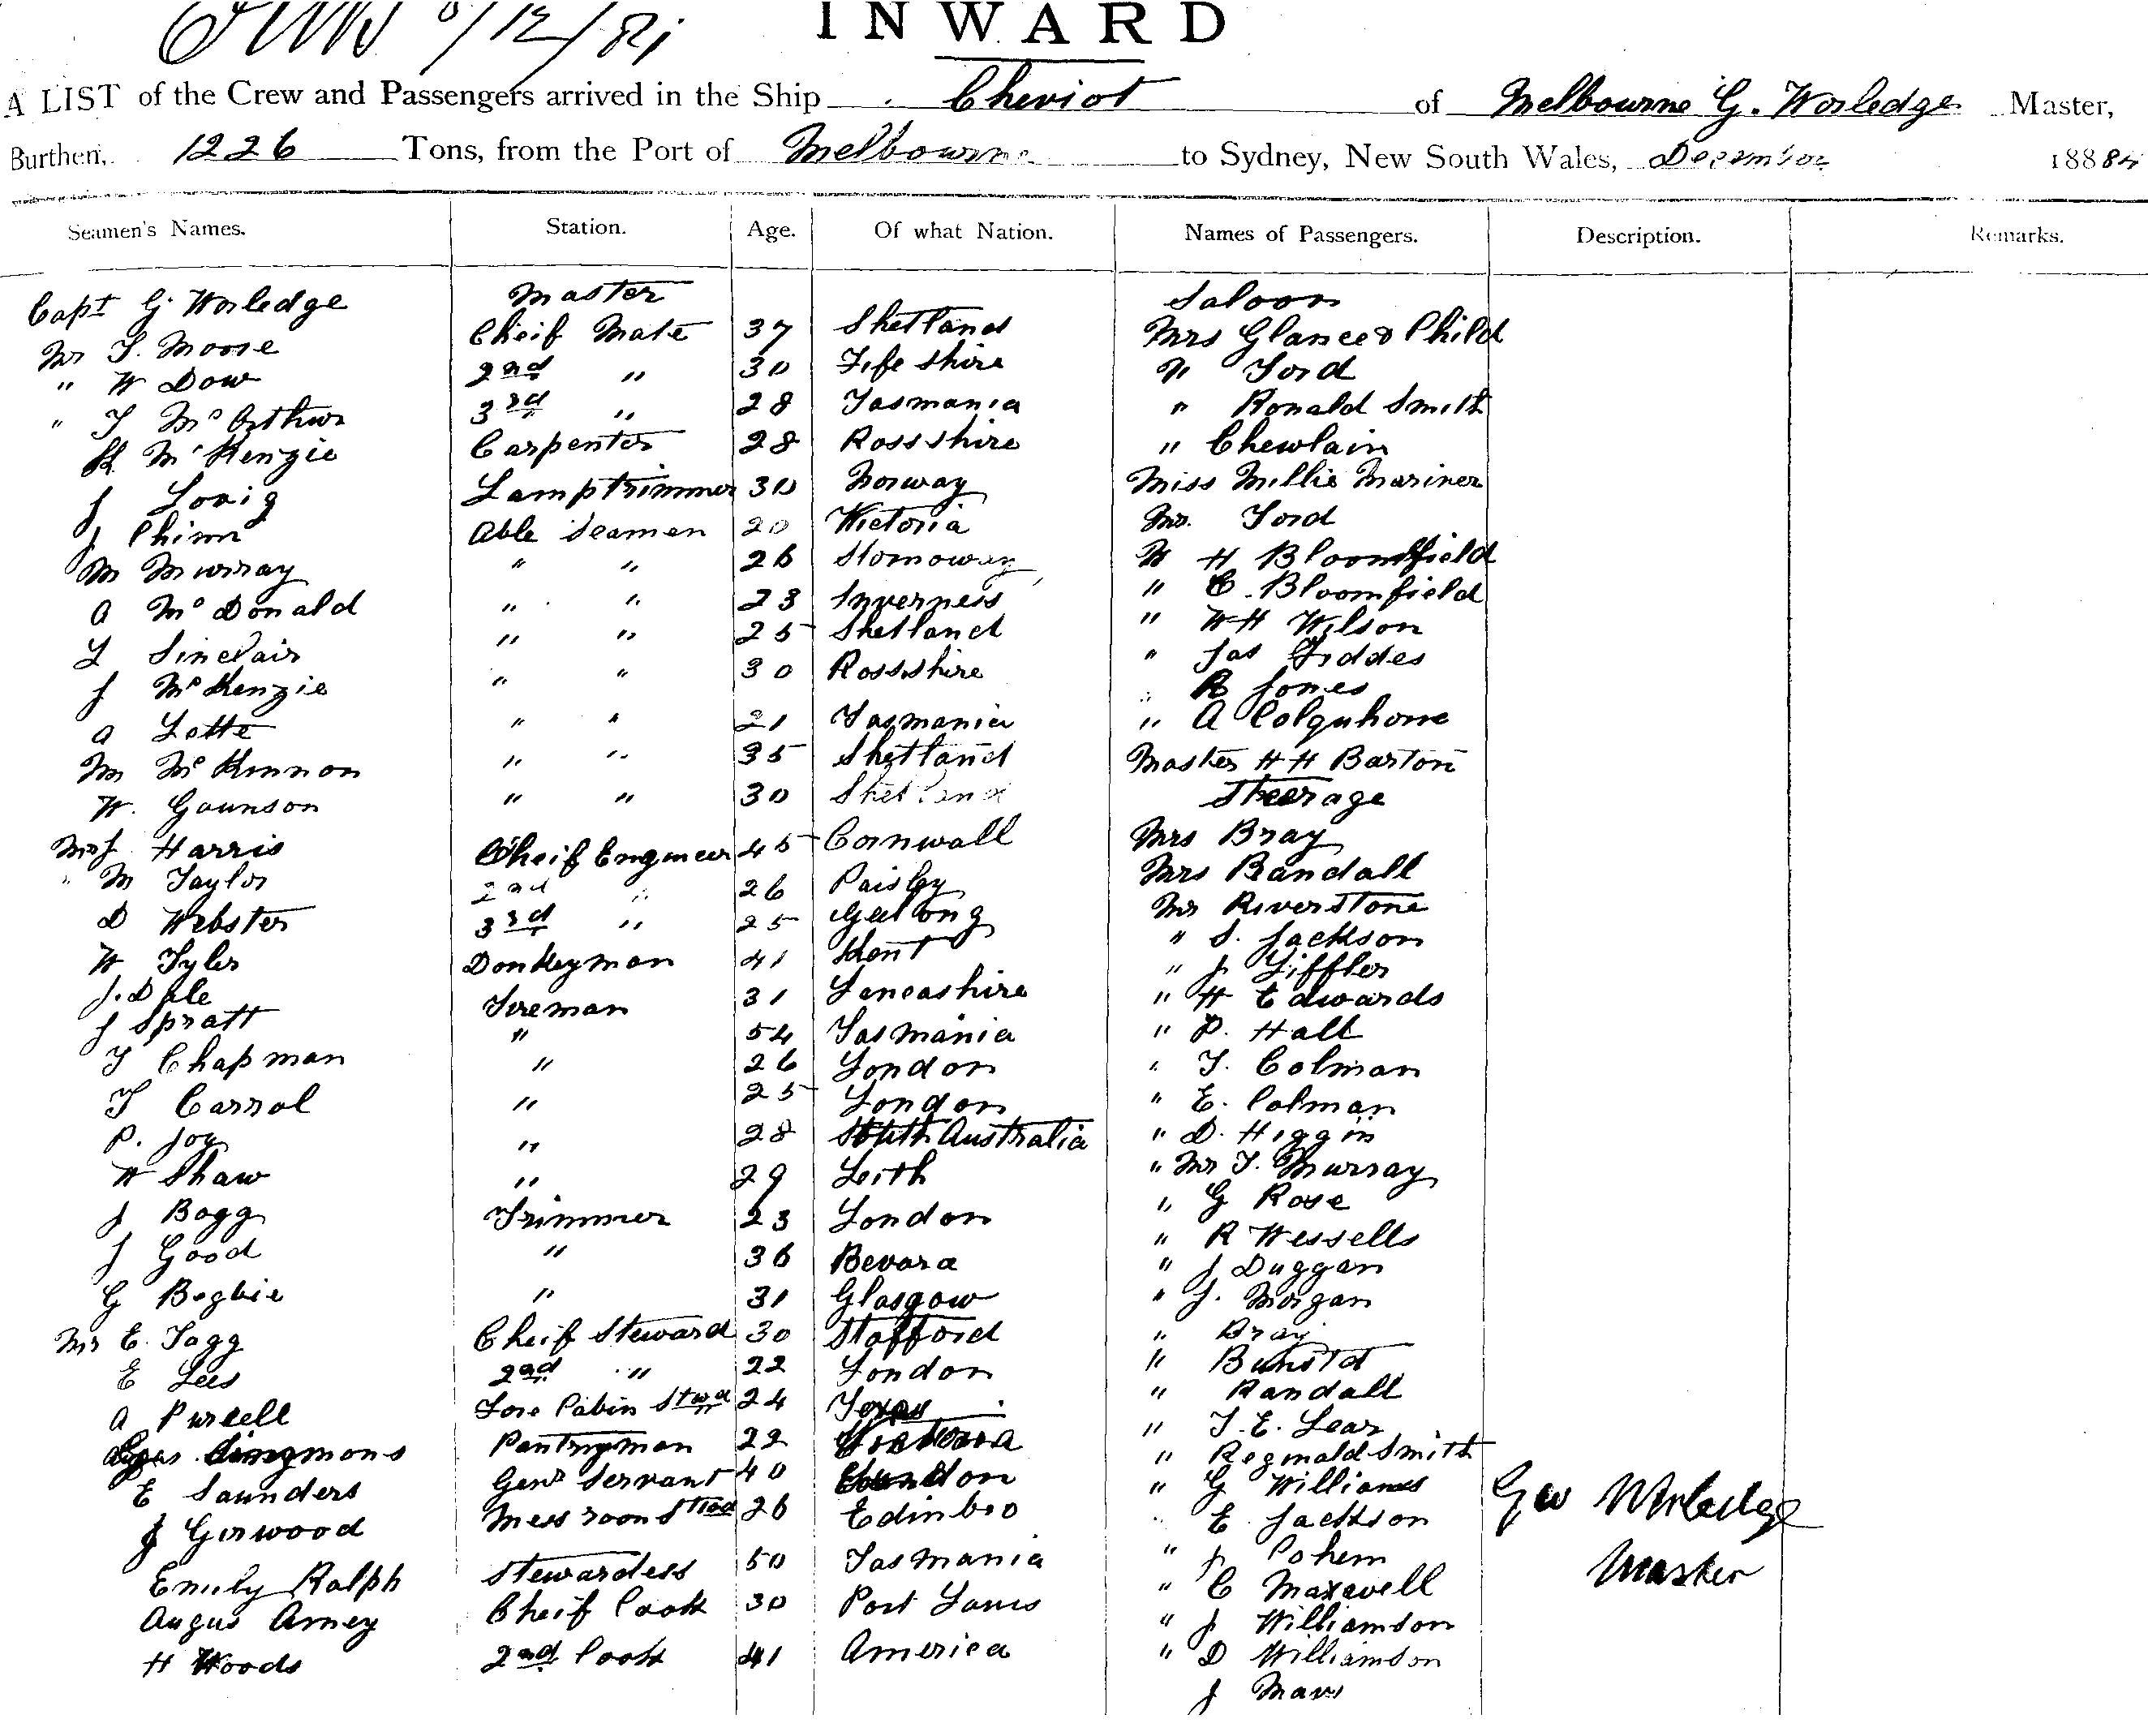 INWARD
A LIST of the Crew and Passengers arrived in the Ship Cheviot of Melbourne G. Worledge Master,
Burthen, 1226 Tons, from the Port of Melbourne to Sydney, New South Wales, December 188
Seamen's Names. Station. Age. Of what Nation. Names of Passengers. Description. Remarks.
Capt G Worledge Master Saloon
Mr T. Moore Cheif Mate 37 Shetland Mrs Glance & Child
" W Dow 2nd " 30 Fifeshire " Ford
" T McArthur 3rd " 28 Tasmania " Ronald Smith
K McKenzie Carpenter 28 Rossshire " Chewlain
J Lovig Lamptrimmer 30 Norway Miss Millie Mariner
J Chinn Able Seamen 20 Victoria Mr. Ford
M Murray " " 26 Stornoway W H Bloomfield
A McDonald " " 23 Inverness " C. Bloomfield
L Sinclair " " 25 Shetland " WH Wilson
J McKenzie " " 30 Rossshire " Jas Fiddes
A Lotte " " 21 Tasmania " R Jones
M McKinnon " " 35 Shetland " A Colquhone
W. Gaunson " " 30 Shetland Master H H Barton
Steerage
Mr J Harris Cheif Engineer 45 Cornwall Mrs Bray
" M Taylor 2nd " 26 Paisley Mrs Randall
D Webster 3rd " 25 Geelong Mr Riverstone
W Tyler Donkeyman 41 Kent " S. Jackson
J. Dale Fireman 31 Lancashire " J Liffler
J Spratt " 54 Tasmania " H Edwards
T Chapman " 26 London " P. Hall
T Carrol " 25 London " T. Colman
P. Joy " 28 South Australia " E. Colman
W Shaw " 29 Leith " D. Higgin
J Bogg Trimmer 23 London " Mr T. Murray
J Good " 36 Bevara " G Rose
G Begbie " 31 Glasgow " R Wessells
Mr E. Tagg Cheif Steward 30 Stafford " J Duggan
E Lees 2nd " 22 London " J. Morgan
A Purcell Fore Cabin Stwd 24 " Bray
Pantryman 22 Victoria " Bunstd
E Saunders Genr Servant 40 London " Randall
J Girwood Messroom Stwd 26 Edinbro " T. E. Lear
Emily Ralph Stewardess 50 Tasmania " Reginald Smith
Augus Amey Cheif Cook 30 Port Louis " G Williams
H Woods 2nd Cook 41 America " E. Jackson
" J Cohem
" C Maxwell
" J Williamson
" D Williamson
J Mavi
Geo Worledge
Master